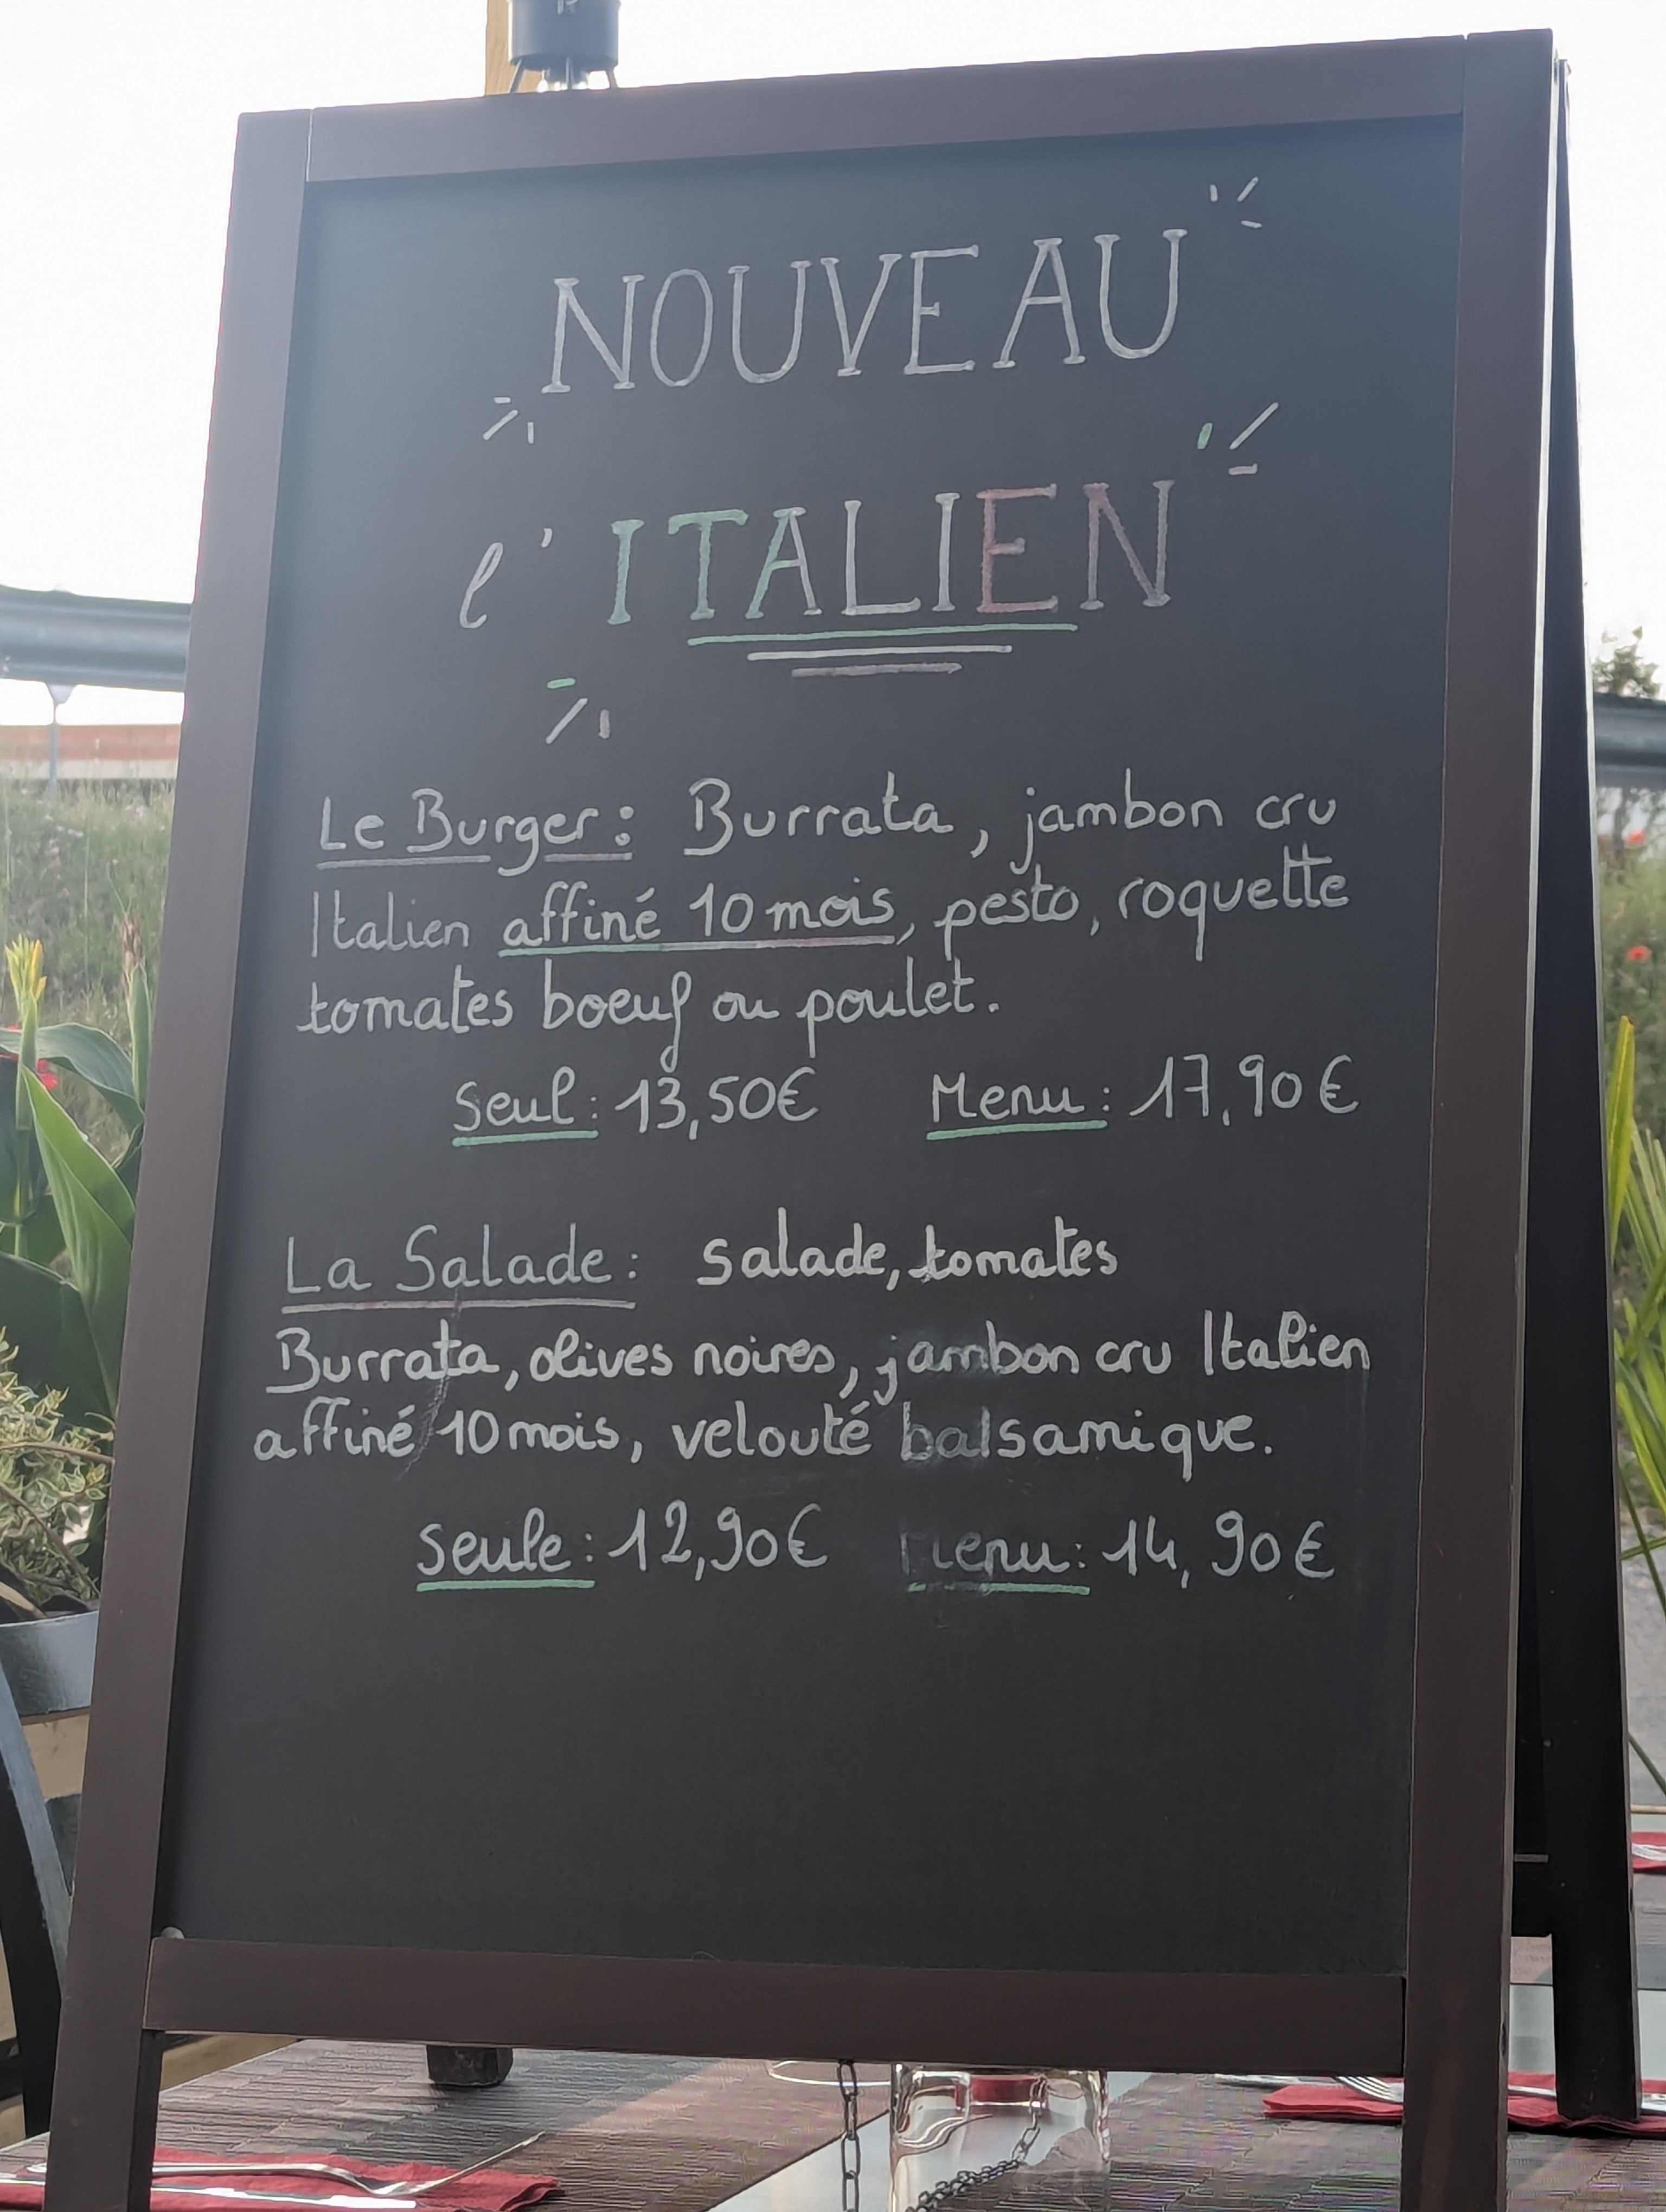 NOUVEAU
l'ITALIEN
Le Burger : Burrata, jambon cru
Italien affiné 10 mois, pesto, roquette
tomates boeuf ou poulet.
Seul : 13,50€ Menu : 17,90€
La Salade : Salade, tomates
Burrata, olives noires, jambon cru Italien
affiné 10 mois, velouté balsamique.
Seule : 12,90€ Menu : 14,90€